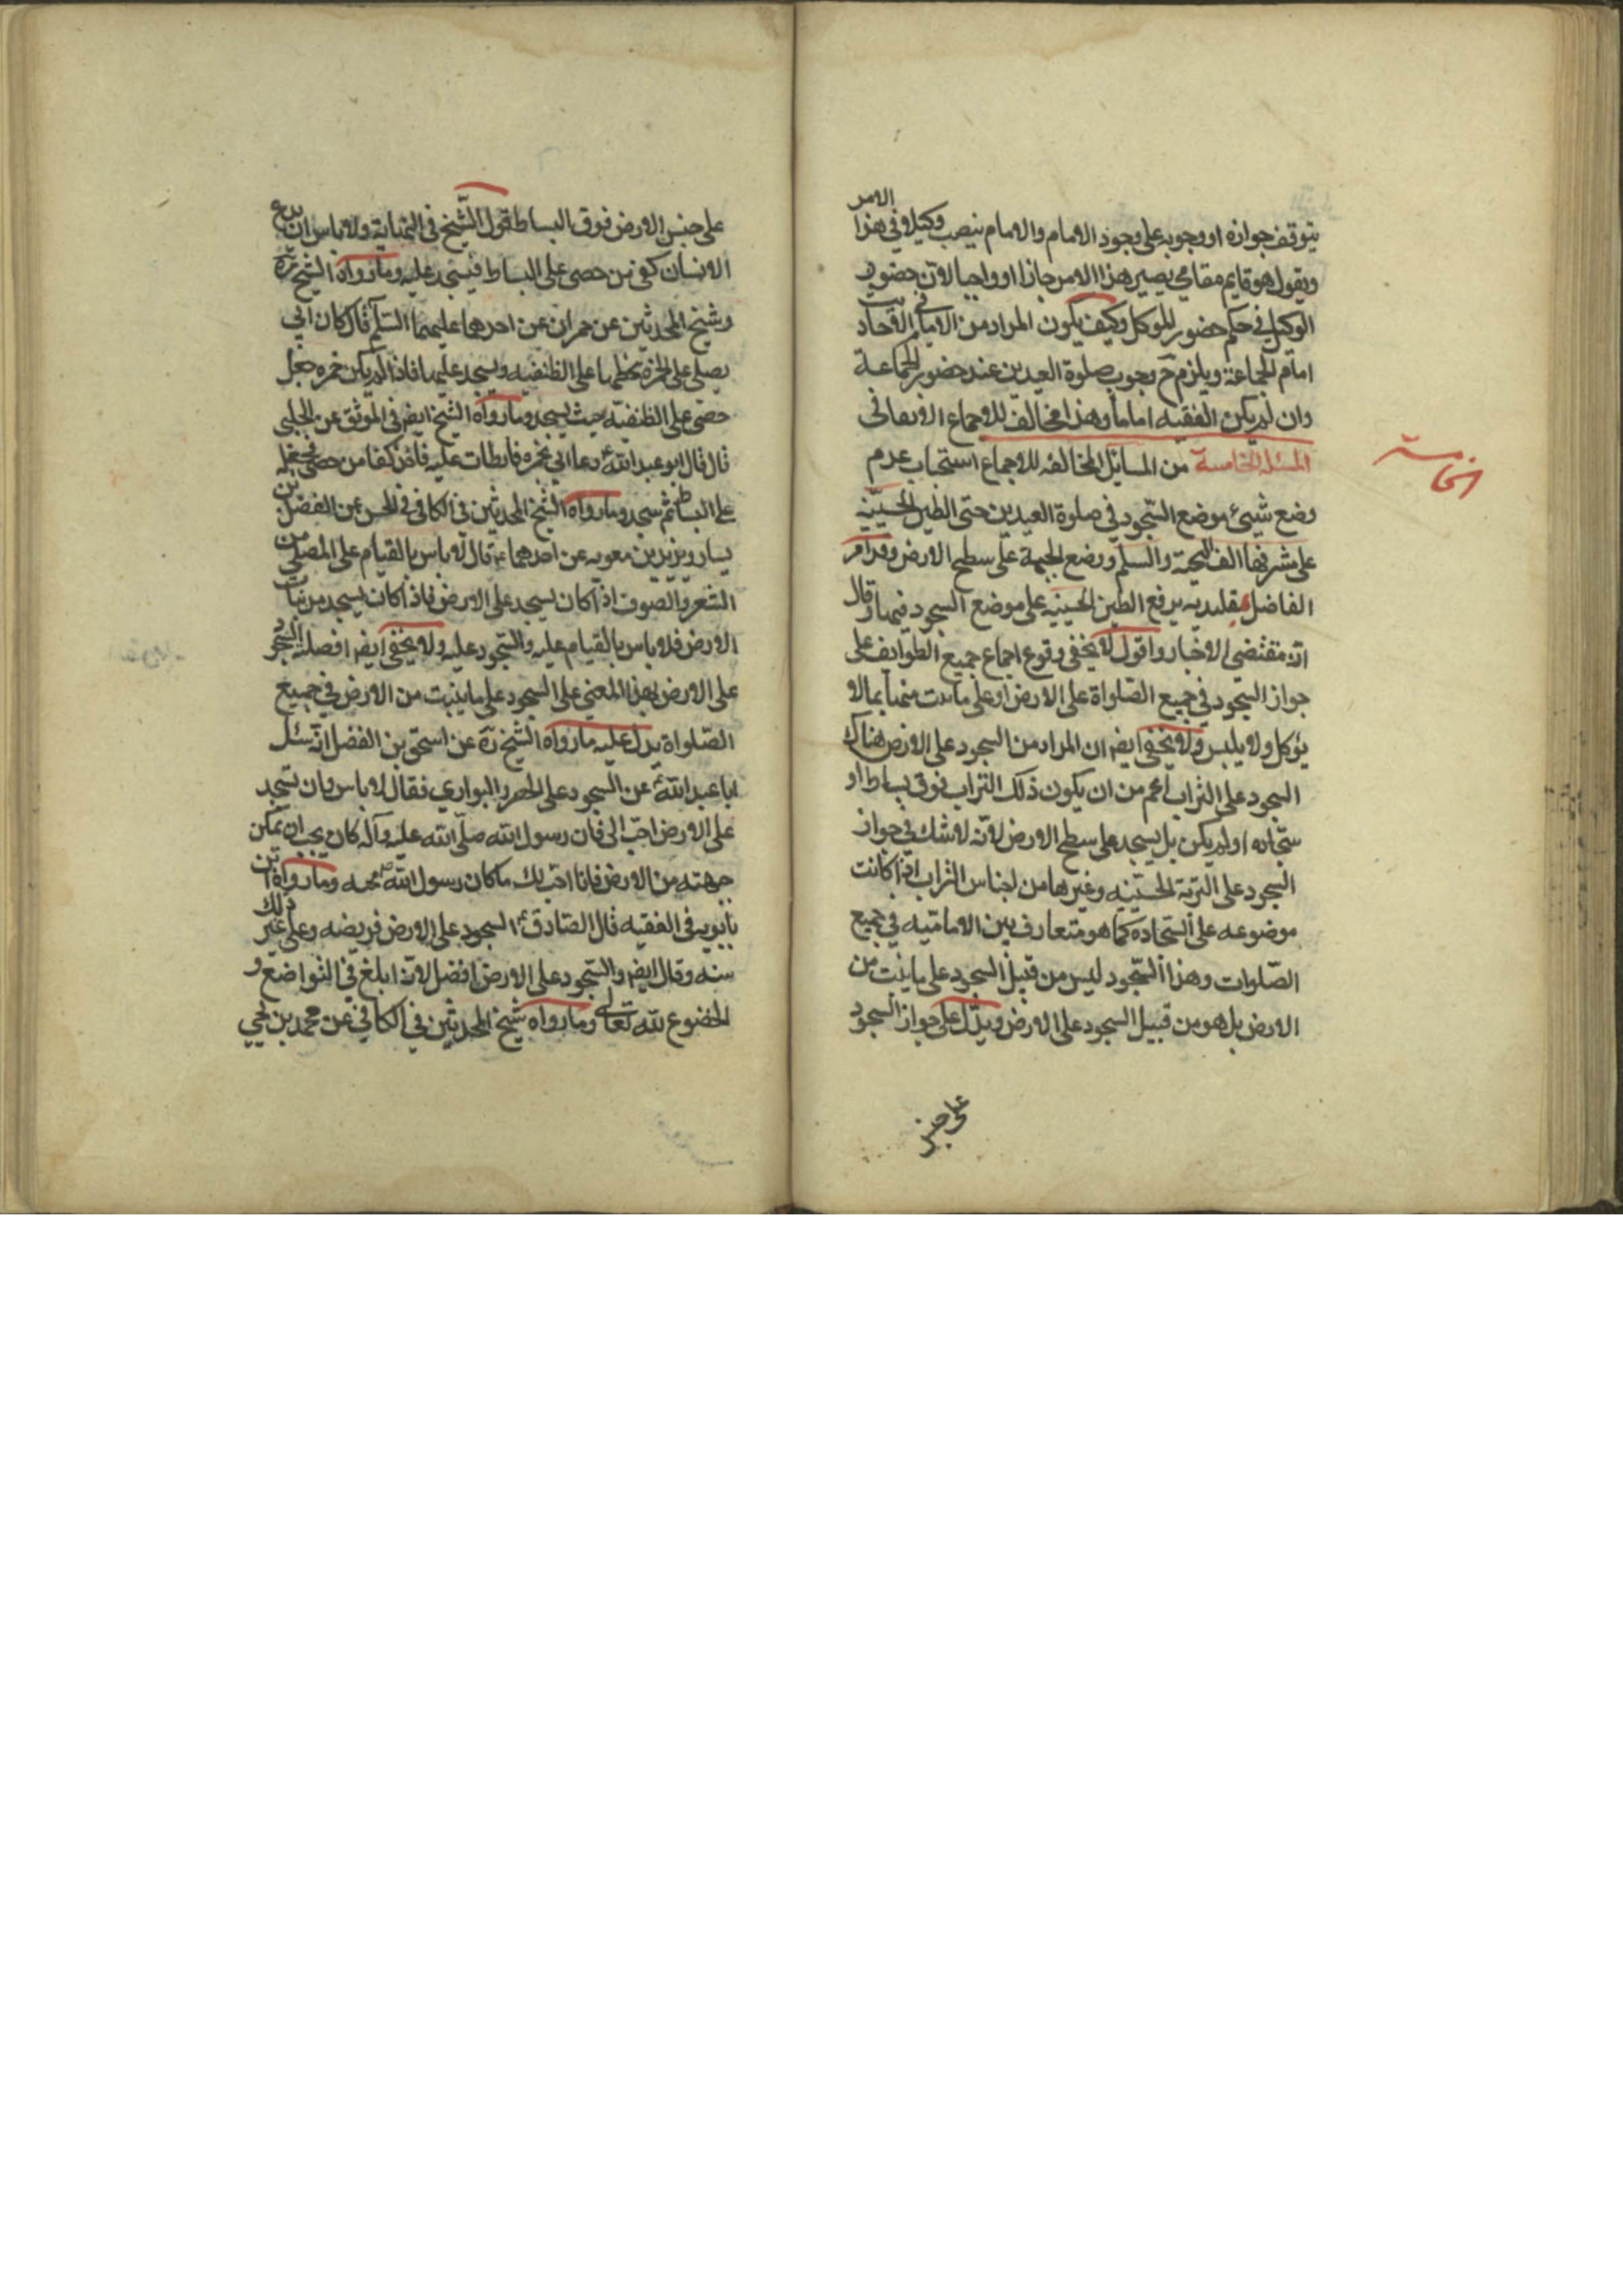 يتوقف جوازه او وجوبه على وجود الامام والامام ينصب وكيلا في هذا الامر
ويقول هو قايم مقامي يصير هذا الامر جائزا او واجبا لان حضور
الوكيل في حكم حضور الموكل وكيف يكون المراد من الامام في الاخبار
امام الجماعة ويلزم ح وجوب صلوة العيدين عند حضور الجماعة
وان لم يكن الفقيه اماما وهذا مخالف للاجماع
المسئلة الخامسة من المسايل المخالفه للاجماع استحباب عدم
الخامسة
وضع شيئ موضع السجود في صلوة العيدين حتى الطين الحسينيه
على مشرفها الف التحية والسلم ووضع الجبهة على سطح الارض وقد امر
الفاضل مقلديه يرفع الطين الحسينيه على موضع السجود فيها وقال
انه مقتضى الاخبار واقول لا يخفى وقوع اجماع جميع الطوايف على
جواز السجود في جميع الصلواة على الارض او على ما نبت منها بما لا
يؤكل ولا يلبس ولا يخفى ايضا ان المراد من السجود على الارض هناك
السجود على التراب اعم من ان يكون ذلك التراب فوق بساط او
سجاده او لم يكن بل يسجد على سطح الارض لانه لا شك في جواز
السجود على التربة الحسينه وغيرها من اجناس التراب اذا كانت
موضوعه على السجاده كما هو متعارف بين الاماميه في جميع
الصلوات وهذا السجود ليس من قبيل السجود على ما ينبت من
الارض بل هو من قبيل السجود على الارض ويدل على جواز السجود
على جنس
على جنس الارض فوق البساط قول الشيخ في النهاية ولا باس ان يدع
الانسان كفى من حصى على البساط فيسجد عليه وما رواه الشيخ ره
وشيخ المحدثين عن حمران عن احدهما عليهما السلم قال كان ابي
يصلي على الخمرة يجعلها على الطنفسه ويسجد عليها فاذا لم يكن خمره جعل
حصى على الطنفسه حيث يسجد وما رواه الشيخ ايضا في الموثق عن الحلبي
قال قال ابو عبد الله ع دعا ابي بخمره فابطات عليه فاخذ كفا من حصى فجعله
على البساط ثم سجد وما رواه الشيخ المحدثين في الكافي في الحسن عن الفضل بن
يسار وبريد بن معويه عن احدهما ع قال لا باس بالقيام على المصلى من
الشعر والصوف اذا كان يسجد على الارض فاذا كان يسجد من نبات
الارض فلا باس بالقيام عليه والسجود عليه ولا يخفى ايضا افضلية السجود
على الارض بهذا المعنى على السجود على ما ينبت من الارض في جميع
الصلواة يدل عليه ما رواه الشيخ ره عن اسحق بن الفضل انه سئل
ابا عبد الله ع عن السجود على الحصر والبواري فقال لا باس وان تسجد
على الارض احب الى فان رسول الله صلى الله عليه وآله كان يحب ان يمكن
جبهته من الارض فانا احب لك ما كان رسول الله ص يحبه وما رواه ابن
بابويه في الفقيه قال الصادق ع السجود على الارض فريضه وعلى غير ذلك
سنه وقال ايضا والسجود على الارض افضل لانه ابلغ في التواضع و
الخضوع لله تعالى وما رواه شيخ المحدثين في الكافي عن محمد بن يحيي